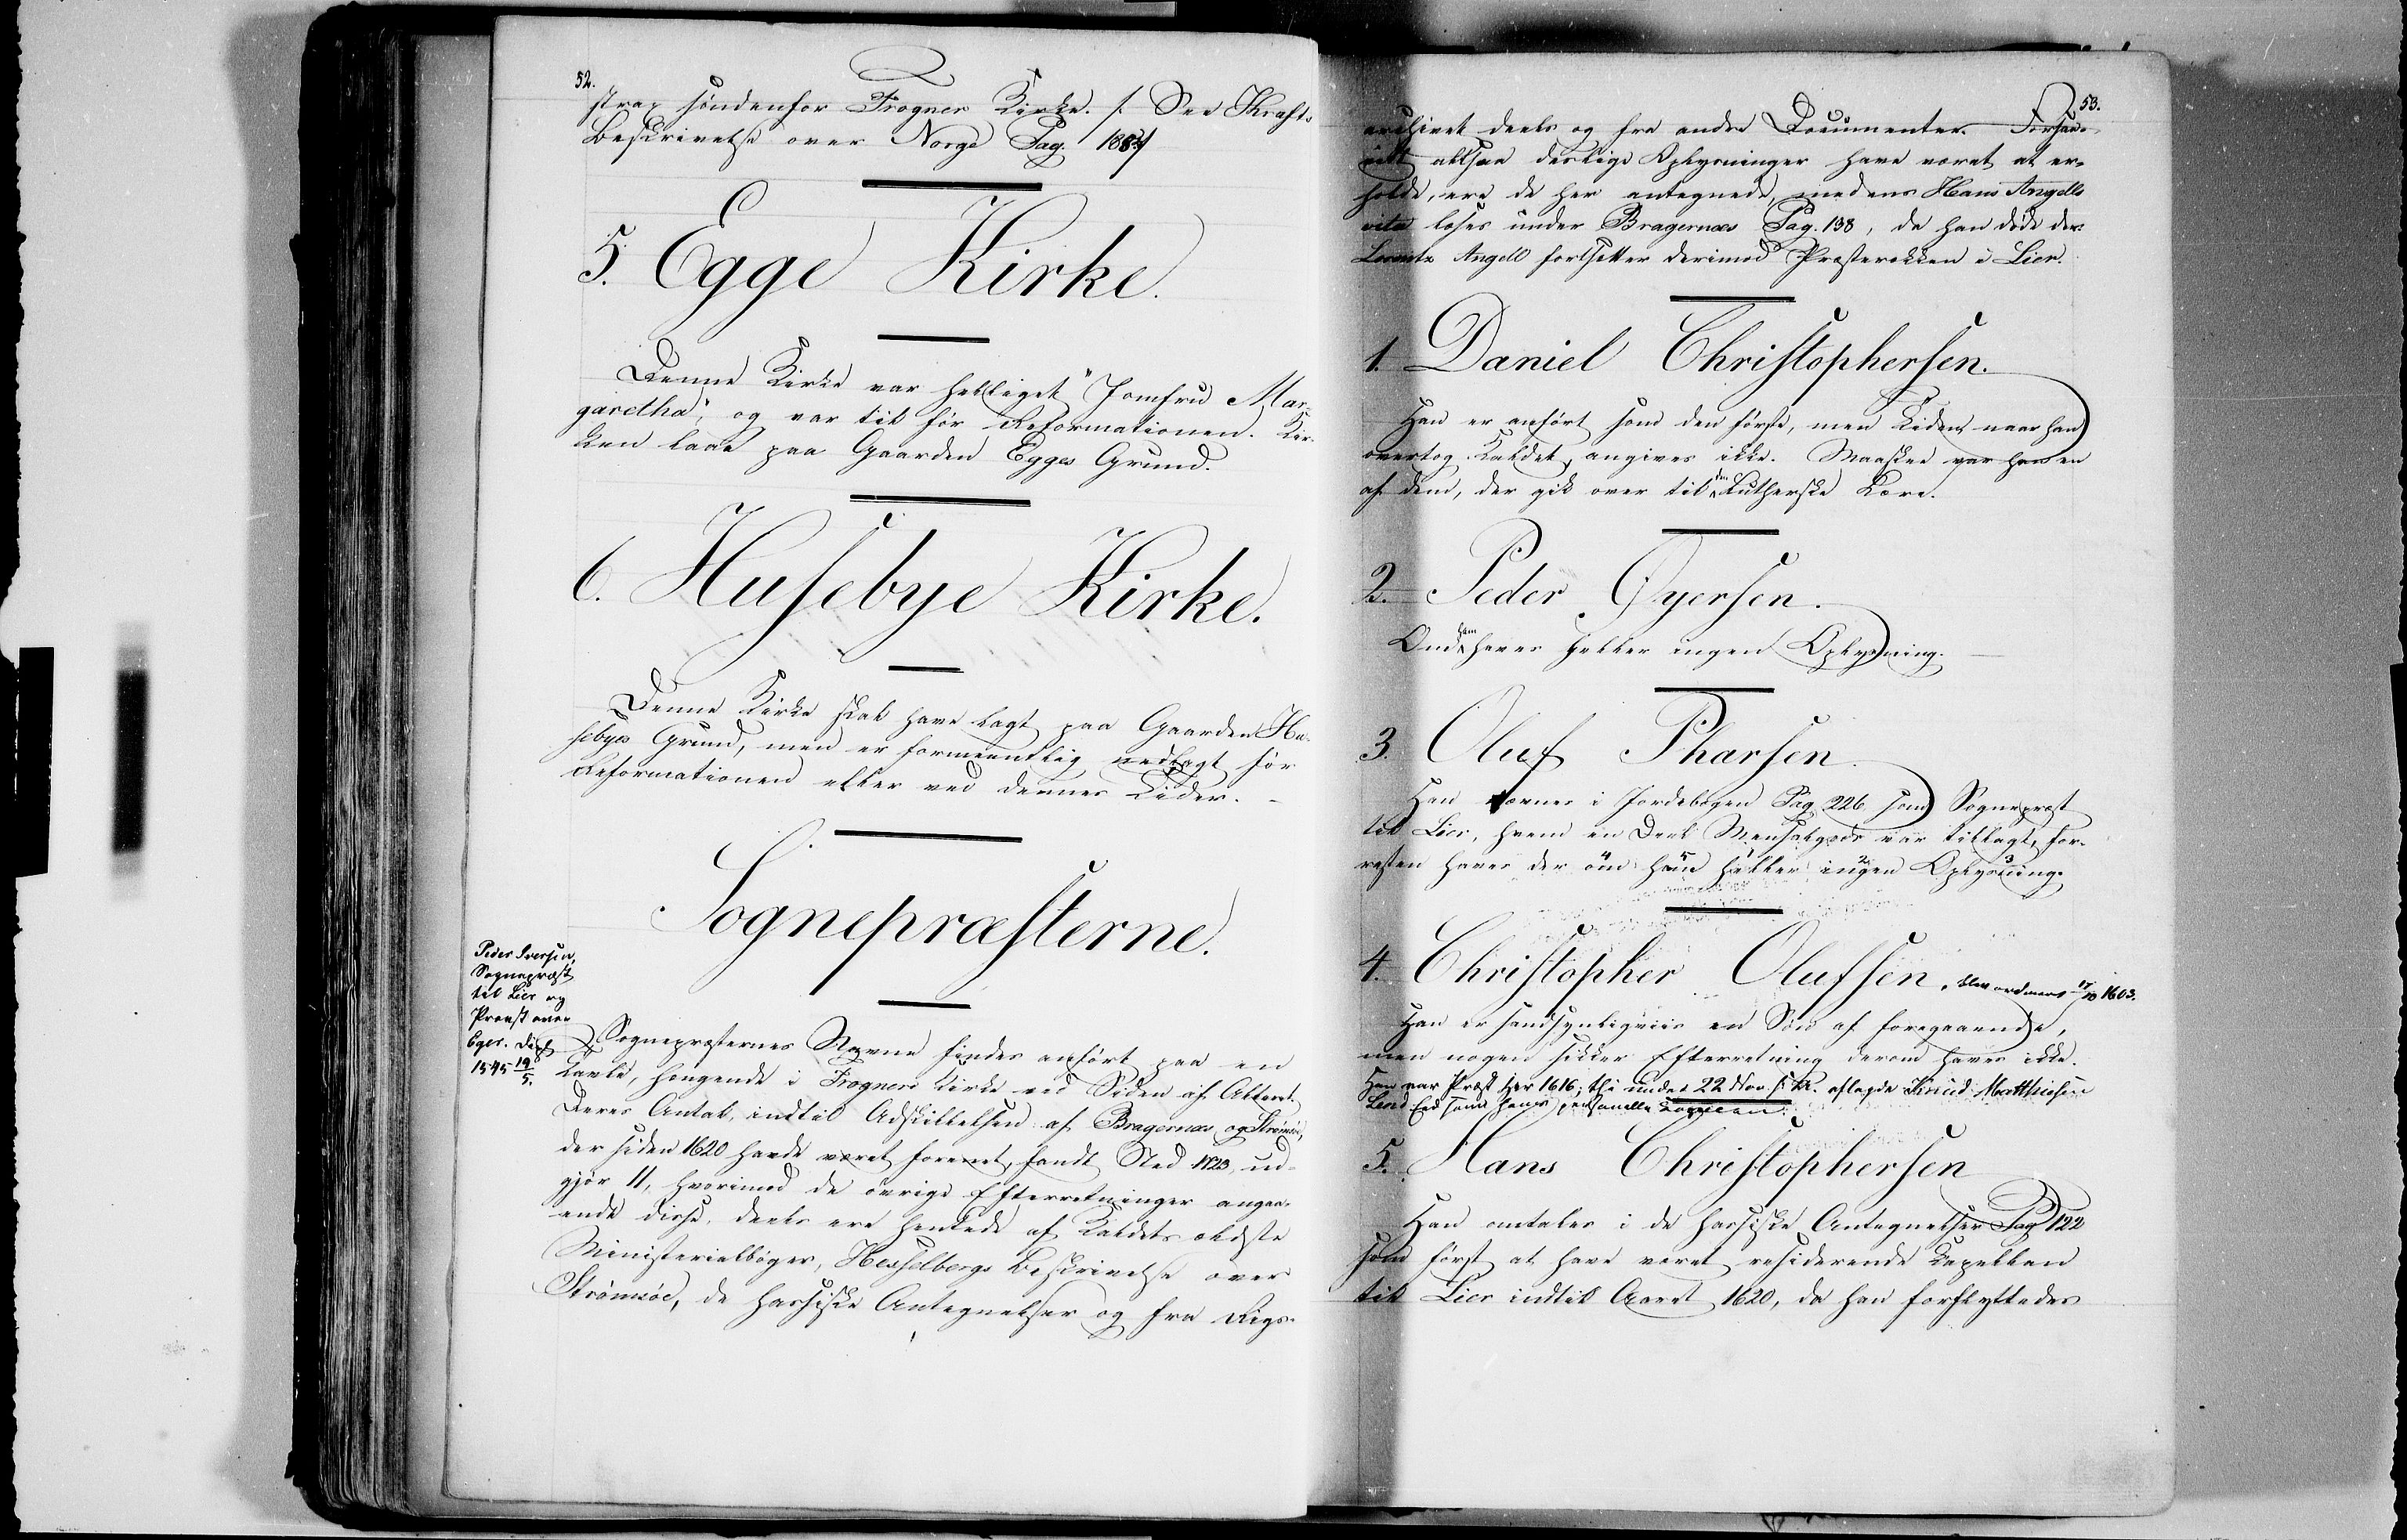 52.
strax søndenfor Frogner Kirke. /: See Krafts
Beskrivelse over Norge Pag. 188
5. Egge Kirke.
Denne Kirke var helliget "Jomfru Mar-
garetha", og var til før Reformationen. Kir-
ken laae paa Gaarden Egges Grund.
6. Husebye Kirke.
Denne Kirke skal have lagt paa Gaarden Hu-
sebyes Grund, men er formeentlig nedlagt før
Reformationen eller ved dennes Tider. -
Sognepræsterne.
Peder Iversen,
Sognepræst
til Lier og
Provst over
Eger. Død
1545 19/5.
Sognepræsternes Navne findes anført paa en
Tavle, hængende i Frogners Kirke ved Siden af Alteret.
Deres Antal, indtil Adskillelsen af Bragernæs og Strømsøe,
der siden 1620 havde været forenet, fandt Sted 1723, ud-
gjør 11, hvorimod de øvrige Efterretninger angaa-
ende disse, deels ere hentede af Kaldets ældste
Ministerialbøger, Hesselbergs Beskrivelse over
Strømsöe, de hassiske Antegnelser og fra Rigs-
53.
archivet deels og fra andre Documenter. Forsaa-
vidt altsaa deslige Oplysninger have været at er-
holde, ere de her antegnede, medens Hans Angells
vita læses under Bragernæs Pag. 138, da han døde der.
Lorentz Angell fortsætter derimod Præsterækken i Lier.
1. Daniel Christophersen.
Han er anført som den første, men Tiden naar han
overtog Kaldet, angives ikke. Maaskee var han en
af dem, der gik over til den Lutherske Lære.
2. Peder Øyersen.
Om ham haves heller ingen Oplysning.
3. Oluf Tharsen.
Han nævnes i Jordebogen Pag. 226, som Sognepræst
til Lier, hvem en Deel Mensalgods var tillagt, for-
resten haves der om 4 ham 5 heller 1 ingen 2 Oplysning 3.
4. Christopher Olufsen, blev ordineret 17/10 1603.
Han er sandsynligviis en Søn af foregaaende,
men nogen sikker Efterretning derom haves ikke.
Han var Præst her 1616; thi under 22 Nov. s. A. aflagde Knud Matthiesen
Lend Eed som hans personelle Capellan.
5. Hans Christophersen
Han omtales i de hassiske Antegnelser Pag 122
som først at have været residerende Kapellan
til Lier indtil Aaret 1620, da han forflyttedes